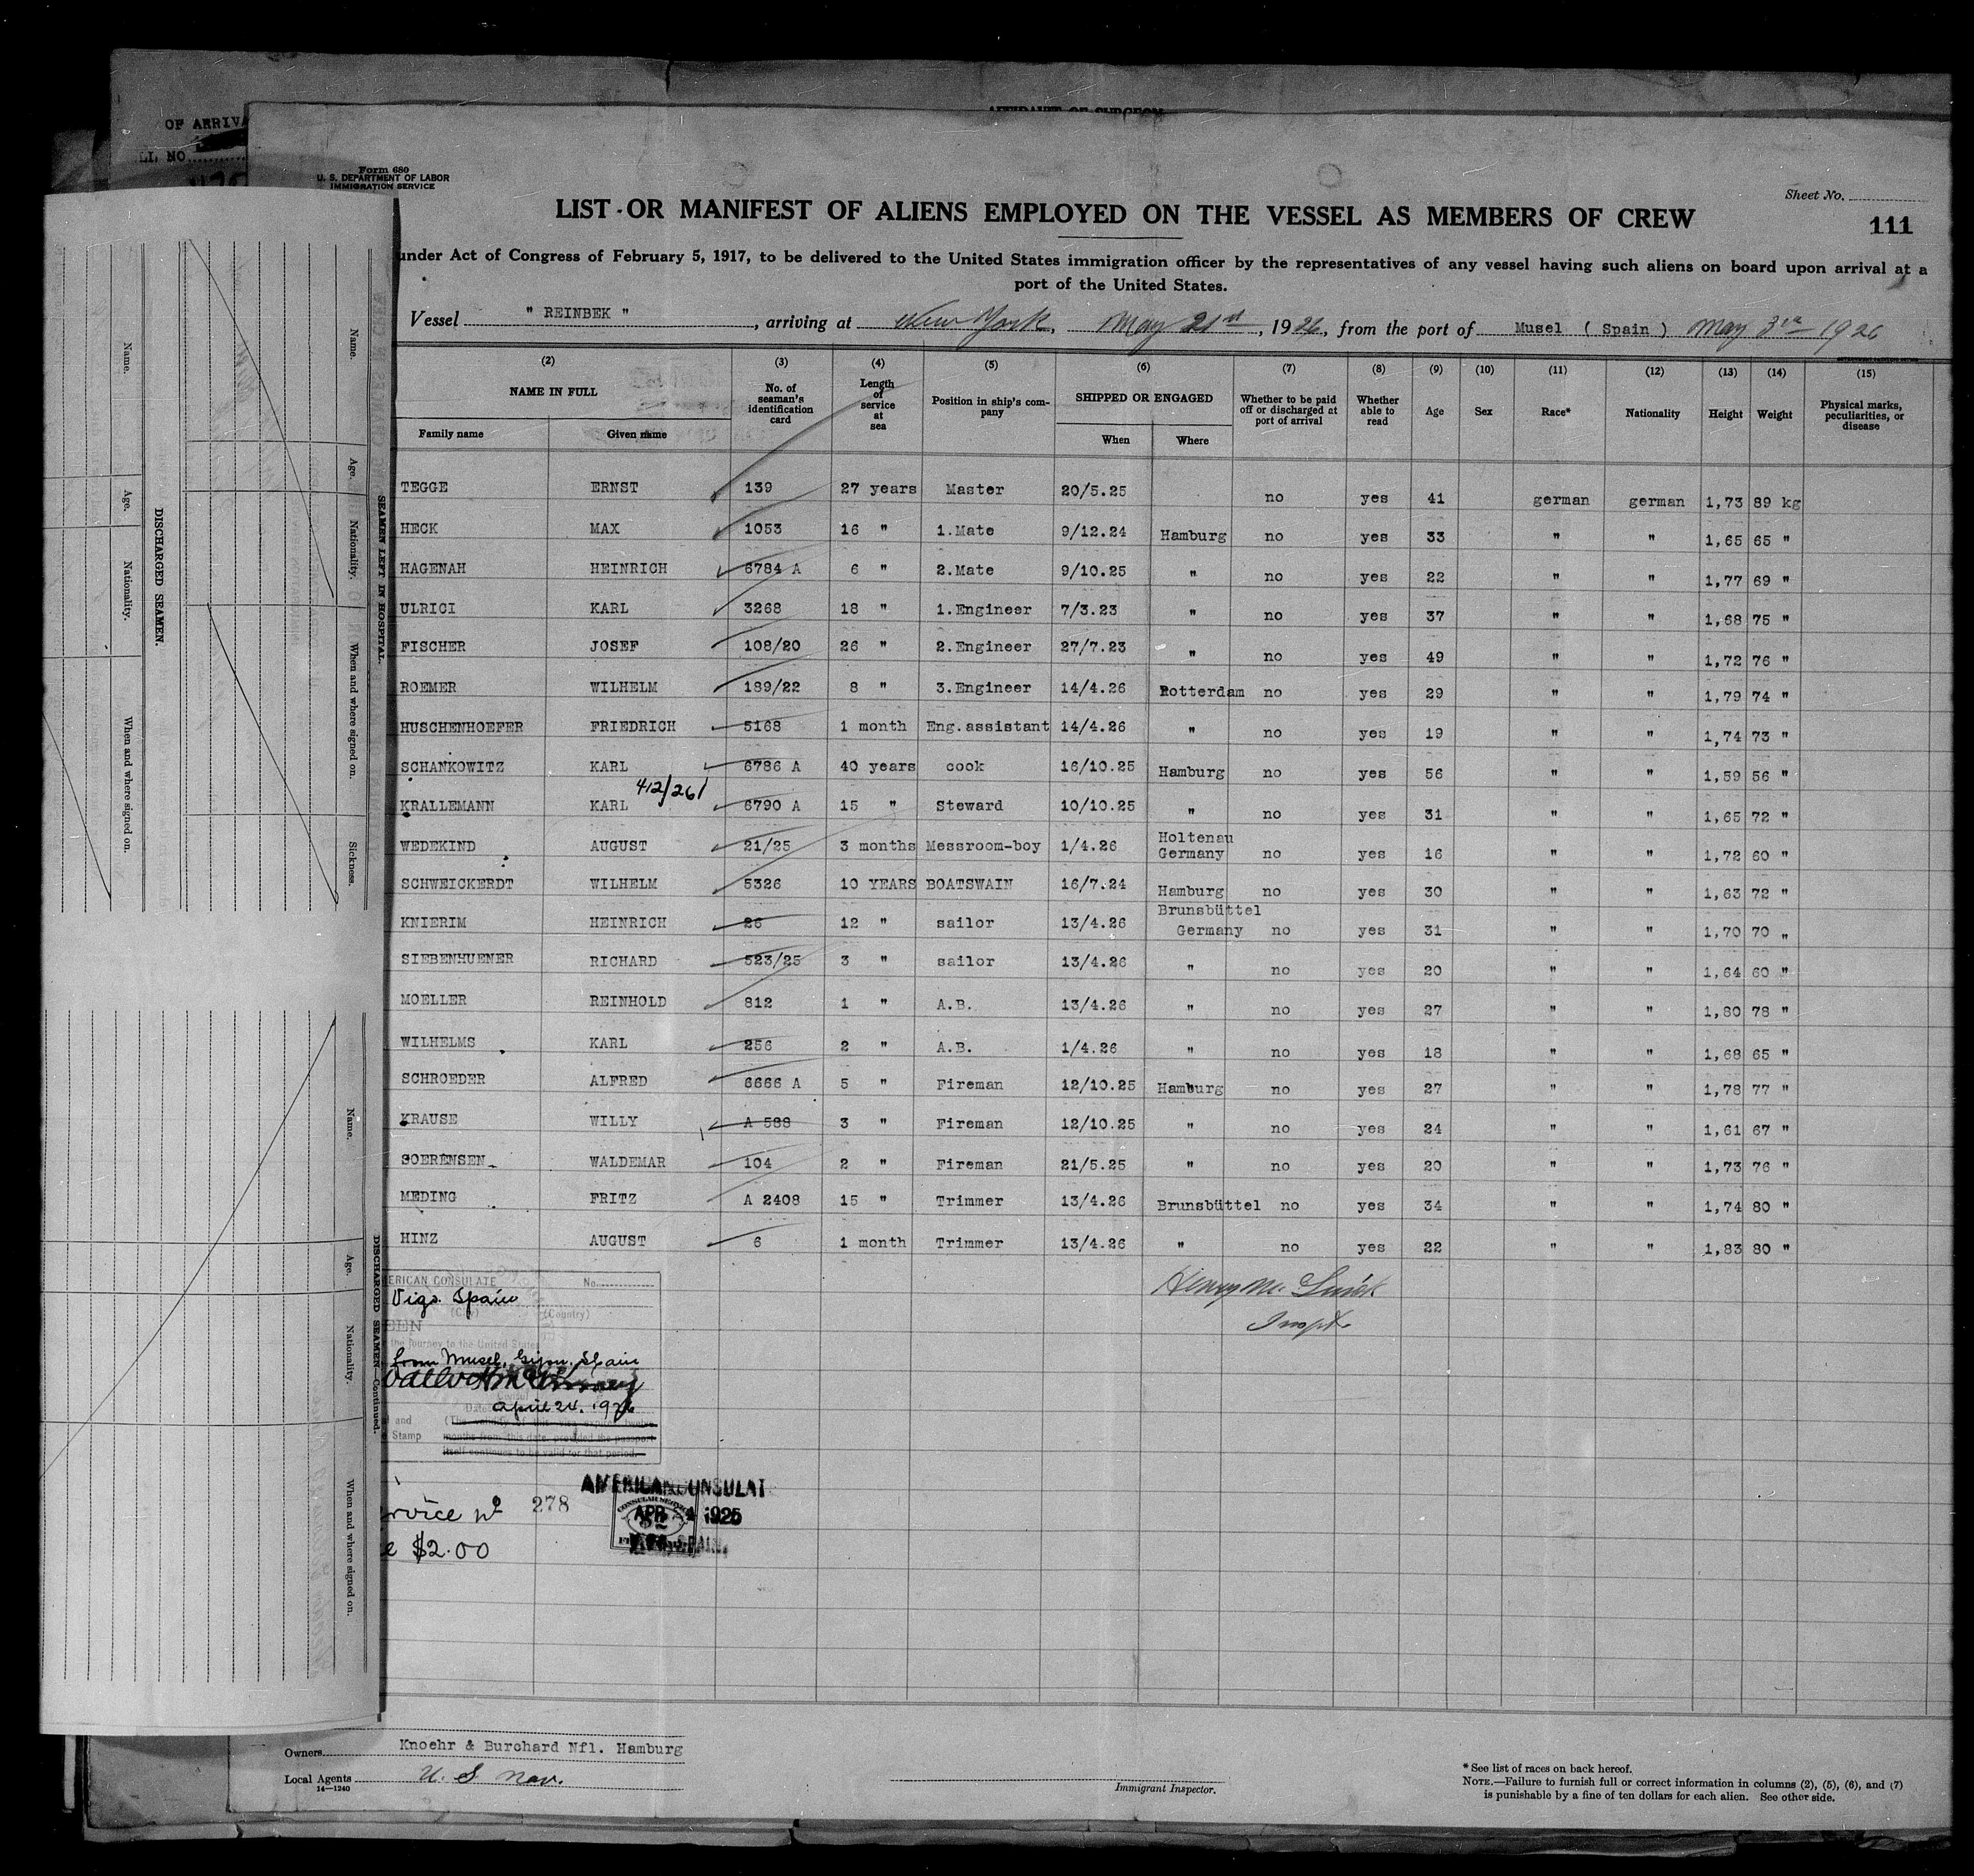 AFFIDAVIT OF SURGEON
OF ARRIVA
LI. NO.
Form 680
U. S. DEPARTMENT OF LABOR
IMMIGRATION SERVICE
Sheet No.
111
LIST OR MANIFEST OF ALIENS EMPLOYED ON THE VESSEL AS MEMBERS OF CREW
under Act of Congress of February 5, 1917, to be delivered to the United States immigration officer by the representatives of any vessel having such aliens on board upon arrival at a
port of the United States.
Vessel " REINBEK ", arriving at New York, May 21st, 1926, from the port of Musel ( Spain ) May 3rd 1926
(2) (3) (4) (5) (6) (7) (8) (9) (10) (11) (12) (13) (14) (15)
NAME IN FULL
Family name Given name
No. of seaman's identification card
Length of service at sea
Position in ship's company
SHIPPED OR ENGAGED
When Where
Whether to be paid off or discharged at port of arrival
Whether able to read
Age Sex Race* Nationality Height Weight
Physical marks, peculiarities, or disease
TEGGE ERNST 139 27 years Master 20/5.25 no yes 41 german german 1,73 89 kg
HECK MAX 1053 16 " 1.Mate 9/12.24 Hamburg no yes 33 " " 1,65 65 "
HAGENAH HEINRICH 6784 A 6 " 2.Mate 9/10.25 " no yes 22 " " 1,77 69 "
ULRICI KARL 3268 18 " 1.Engineer 7/3.23 " no yes 37 " " 1,68 75 "
FISCHER JOSEF 108/20 26 " 2.Engineer 27/7.23 " no yes 49 " " 1,72 76 "
ROEMER WILHELM 189/22 8 " 3.Engineer 14/4.26 Rotterdam no yes 29 " " 1,79 74 "
HUSCHENHOEFER FRIEDRICH 5168 1 month Eng.assistant 14/4.26 " no yes 19 " " 1,74 73 "
SCHANKOWITZ KARL 6786 A 40 years cook 16/10.25 Hamburg no yes 56 " " 1,59 56 "
412/261
KRALLEMANN KARL 6790 A 15 " Steward 10/10.25 " no yes 31 " " 1,65 72 "
WEDEKIND AUGUST 21/25 3 months Messroom-boy 1/4.26 Holtenau Germany no yes 16 " " 1,72 60 "
SCHWEICKERDT WILHELM 5326 10 YEARS BOATSWAIN 16/7.24 Hamburg no yes 30 " " 1,63 72 "
KNIERIM HEINRICH 26 12 " sailor 13/4.26 Brunsbüttel Germany no yes 31 " " 1,70 70 "
SIEBENHUENER RICHARD 523/25 3 " sailor 13/4.26 " no yes 20 " " 1,64 60 "
MOELLER REINHOLD 812 1 " A.B. 13/4.26 " no yes 27 " " 1,80 78 "
WILHELMS KARL 256 2 " A.B. 1/4.26 " no yes 18 " " 1,68 65 "
SCHROEDER ALFRED 6666 A 5 " Fireman 12/10.25 Hamburg no yes 27 " " 1,78 77 "
KRAUSE WILLY A 588 3 " Fireman 12/10.25 " no yes 24 " " 1,61 67 "
SOERENSEN WALDEMAR 104 2 " Fireman 21/5.25 " no yes 20 " " 1,73 76 "
MEDING FRITZ A 2408 15 " Trimmer 13/4.26 Brunsbüttel no yes 34 " " 1,74 80 "
HINZ AUGUST 6 1 month Trimmer 13/4.26 " no yes 22 " " 1,83 80 "
ERICAN CONSULATE No.
Vigo. Spain
(City) (Country)
EEN
the journey to the United States
from Musel, Gijon, Spain
Consul
April 24. 1926
and
Stamp
(The validity of this visa expires twelve
months from this date, provided the passport
itself continues to be valid for that period.
rvice No 278
e $2.00
AMERICAN CONSULAT
CONSULAR SERVICE
APR 24 1926
VIGO, SPAIN.
Owners Knoehr & Burchard Nfl. Hamburg
Local Agents U. S. Nav.
14—1240
Immigrant Inspector.
* See list of races on back hereof.
NOTE.—Failure to furnish full or correct information in columns (2), (5), (6), and (7)
is punishable by a fine of ten dollars for each alien. See other side.
SEAMEN LEFT IN HOSPITAL.
Name. Age. Nationality. When and where signed on. Sickness.
DISCHARGED SEAMEN.
Name. Age. Nationality. When and where signed on.
DISCHARGED SEAMEN—Continued.
Name. Age. Nationality. When and where signed on.